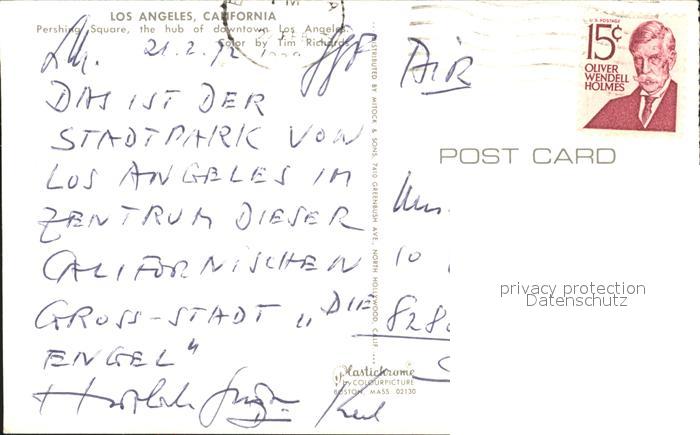 LOS ANGELES, CALIFORNIA
Pershing Square, the hub of downtown Los Angeles.
Color by Tim Richards
21.2.72
AIR
U.S. POSTAGE
15¢
OLIVER
WENDELL
HOLMES
POST CARD
DAS IST DER
STADTPARK VON
LOS ANGELES IM
ZENTRUM DIESER
CALIFORNISCHEN
GROSS-STADT „DIE
ENGEL“
DISTRIBUTED BY MITOCK & SONS, 7410 GREENBUSH AVE., NORTH HOLLYWOOD, CALIF.
10
828
privacy protection
Datenschutz
Plastichrome
by COLOURPICTURE
BOSTON, MASS. 02130